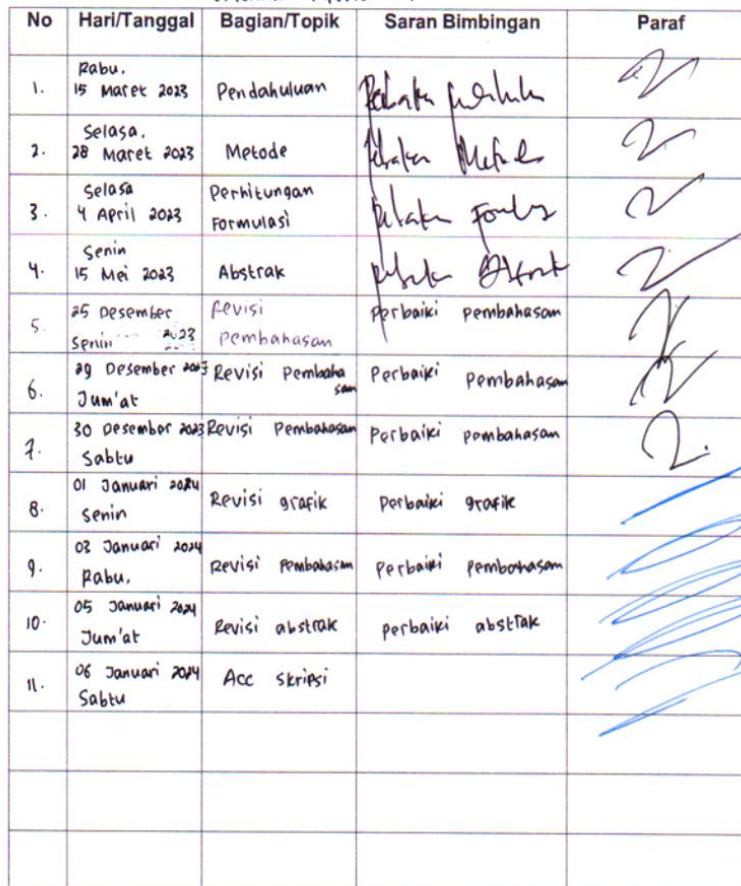 No Hari/Tanggal Bagian/Topik Saran Bimbingan Paraf
1. Rabu, 15 Maret 2023 Pendahuluan
2. Selasa, 28 Maret 2023 Metode
3. Selasa 4 April 2023 Perhitungan Formulasi
4. Senin 15 Mei 2023 Abstrak
5. 25 Desember Senin 2023 Revisi Pembahasan Perbaiki pembahasan
6. 29 Desember 2023 Jum'at Revisi Pembahasan Perbaiki Pembahasan
7. 30 Desember 2023 Sabtu Revisi Pembahasan Perbaiki pembahasan
8. 01 Januari 2024 Senin Revisi grafik Perbaiki grafik
9. 03 Januari 2024 Rabu, Revisi Pembahasan Perbaiki Pembahasan
10. 05 Januari 2024 Jum'at Revisi abstrak perbaiki abstrak
11. 06 Januari 2024 Sabtu Acc skripsi